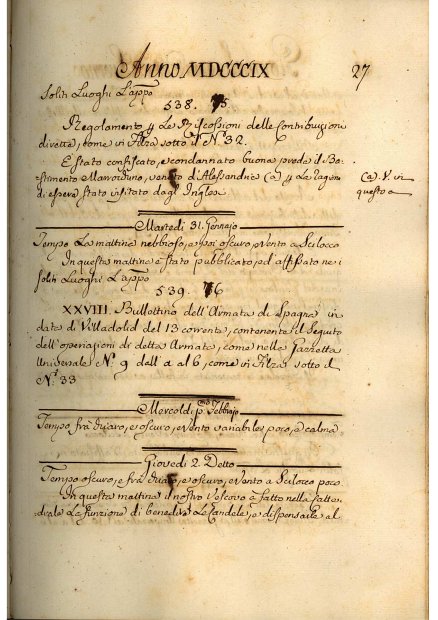 Anno MDCCCIX 27
Soliti Luoghi L'appo
538. 75
Regolamento p. Le Riscossioni delle Contribuzioni
dirette, come in Filza sotto il N.º 32.
È stato confiscato, e condannato buona preda il Ba-
stimento Marrochino, venuto d'Alessandria (a) p. La ragione
di essere stato visitato dagl'Inglesi
(a). V. in
questo a
Martedì 31. Gennajo
Tempo La mattina nebbioso, e poi oscuro, e Vento a Scilocco
In questa mattina è stato pubblicato, ed affissato nei
soliti Luoghi L'appo
539. 76
XXVIII. Bullottino dell'Armata di Spagna in
data di Villadolid del 13 corrente, contenente il seguito
dell'operazioni di detta Armata, come nella Gazzetta
Universale N.º 9 dall' a al 6, come in Filza sotto il
N.º 33
Mercoldì p.mo Febbrajo
Tempo frà chiaro, e oscuro, e vento variabile, poco, e calma
Giovedì 2. Detto
Tempo oscuro, e frà chiaro, e oscuro, e Vento a Scilocco poco
In questa mattina il nostro Vescovo à fatto nella Catte-
drale La funzione di benedire Le Candele, e dispensarle al